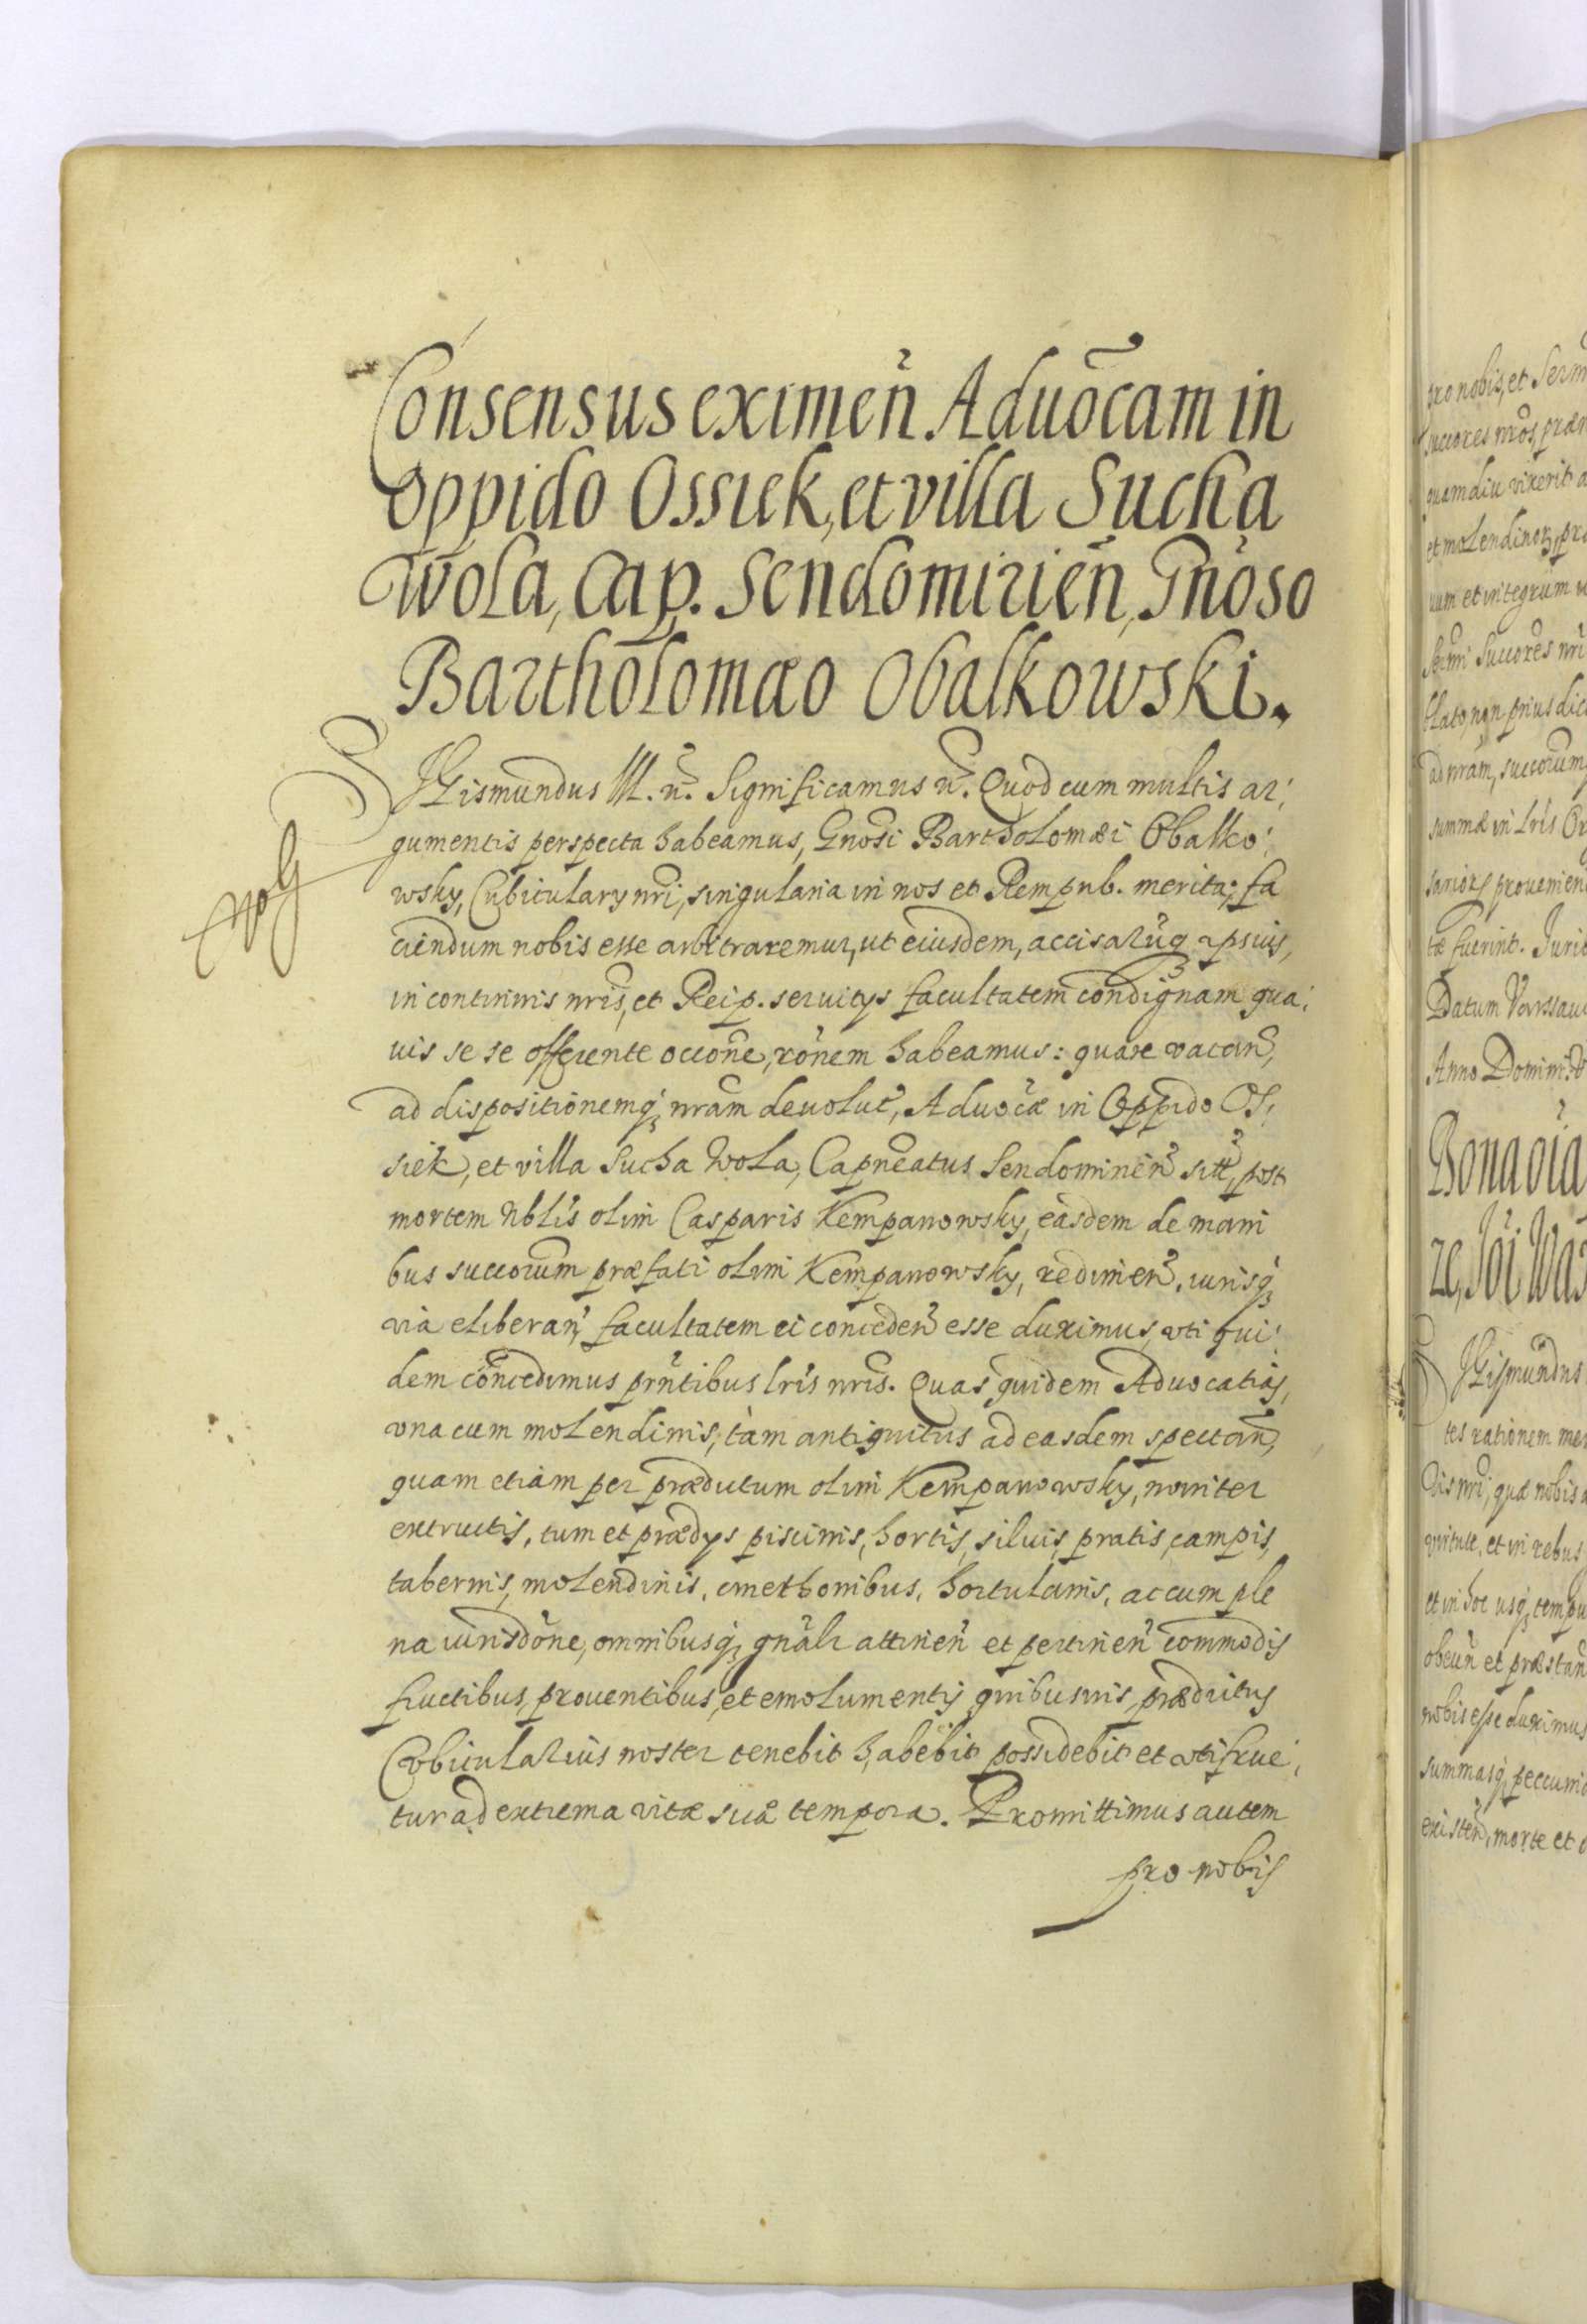 Consensus eximeñ Aduōcam in
oppido Ossiek, et villa Sucha
Wola, Cap. Sendomirieñ, Gnoso
Bartholomæo Obalkowski.
SIGismundus III. ñ. Significamus ñ. Quod cum multis ar,
gumentis perspecta habeamus, Gnosi Bartholomæi Obalko,
wsky, Cubiculary nri, singularia in nos et Rempub. merita, fa
ciendum nobis esse arbitraremur, ut eiusdem,
in continuis nris, et Reip. seruitys facultatem condignam qua,
uis se se offerente occone, ronem habeamus: quare vacan,
ad dispositionemq; nram deuolut, Aduocæ in Oppido Os,
siek, et villa Sucha Wola, Capneatus Sendomirien sit, post
mortem Nblis olim Casparis Kempanowsky, easdem de mani
bus succorum præfati olim Kempanowsky, redimen, iurisq;
via eliberan, facultatem ei conceden esse duximus, vti qui,
dem concedimus prntibus lris nris. Quas quidem Aduocatias,
vna cum molendinis, tàm antiquitus ad easdem spectan,
quam etiàm per prædictum olim Kempanowsky, nouiter
extructis, tum et prædys piscinis, hortis, siluis, pratis, campis,
tabernis, molendinis, cmethonibus, hortulanis, ac cum ple
na iurisdone, omnibusq; gnali attinen et pertinen commodis
fructibus, prouentibus, et emolumentis quibusuis prædictus
Cubicularius noster tenebit habebit possidebit et vtifrue,
tur ad extrema vitæ suæ tempora. Promittimus autem
pro nobis
pro nobis, et Serm
succores nros, præn
quamdiu vixerit a
et molendinor, pro
uum et integrum
Sermi Succores nri
blato, non prius dic
ad nram, succorum
summæ in lris Or
prouenien
tæ fuerint. Juri
Datum Varssau
Anno Domini
Bona
SIGismundus
tes rationem mer
nri, quæ nobis
virtute, et in rebus
et in hoc usq; tempu
obeun et præstan
nobis esse duximus
summasq; peccuni
existen, morte et